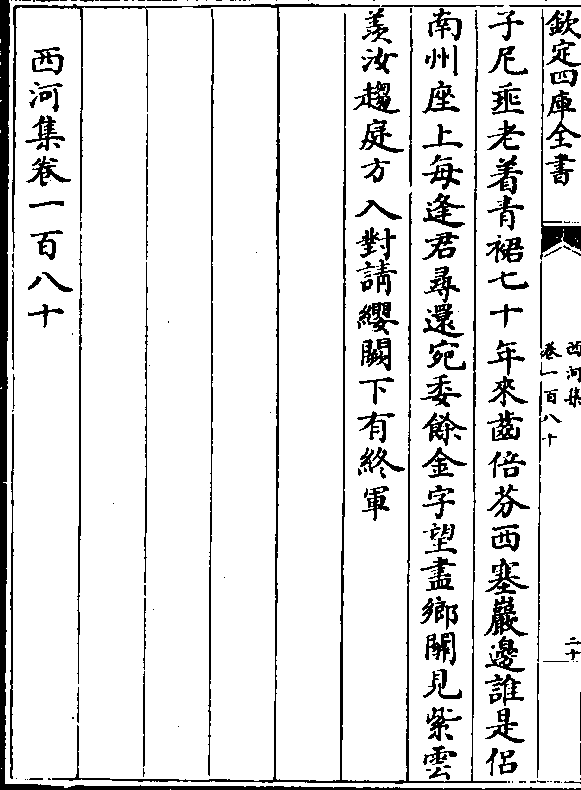 欽定四庫全書
西河集
卷一百八十
二十
子尼垂老着青裙七十年來齒倍芬西塞巖邊誰是侣
南州座上每逢君尋還宛委餘金字望盡鄉關見紫雲
羨汝趨庭方入對請纓闕下有終軍
西河集卷一百八十